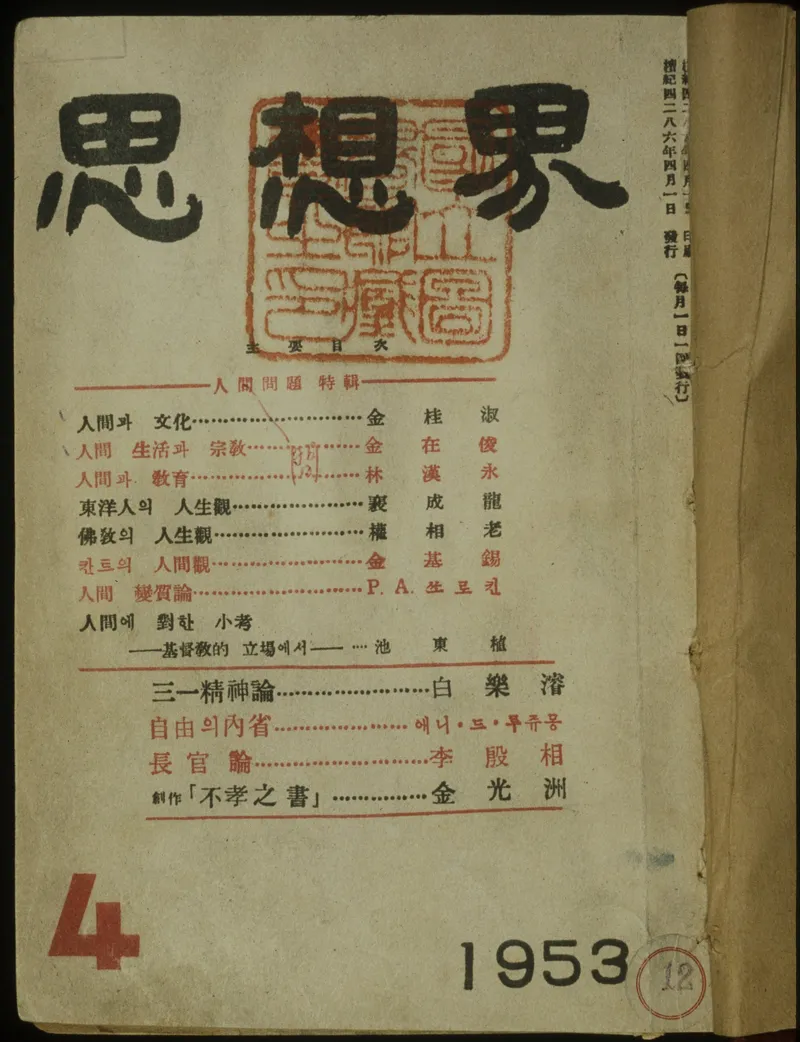 思想界
主要目次
人間問題 特輯
人間과 文化 金桂淑
人間 生活과 宗教 金在俊
人間과 教育 林漢永
東洋人의 人生觀 裵成龍
佛敎의 人生觀 權相老
칸트의 人間觀 金基錫
人間 變質論 P. A. 쏘로킨
人間에 對한 小考
——基督敎的 立場에서—— 池東植
三一精神論 白樂濬
自由의內省 애니·드·루쥬몽
長官論 李殷相
創作「不孝之書」 金光洲
4
1953
12
檀紀四二八六年四月一日 發行
〔每月一日一回發行〕